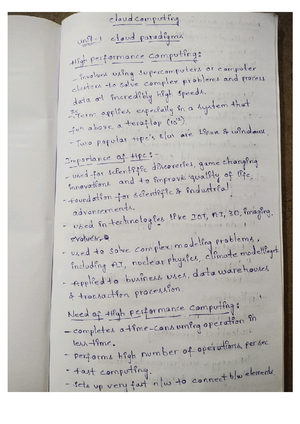 cloud computing
unit-1 cloud paradigms
High performance Computing:
- involves using supercomputers or computer
clusters to solve complex problems and process
data at incredibly high speeds.
- Term applies especially in a system that
fun above a teraflop (10¹²).
- Two popular Hpc's s/w are Linux & windows.
Importance of Hpc:-
- used for scientific discoveries, game changing
innovations and to improve quality of life,
- foundation for scientific & industrial
advancements.
- used in technologies like IOT, AI, 3D, imaging.
- used to solve complex modling problems,
including AI, nuclear physics, climate modelling etc
- Applied to business uses, data warehouses
& transaction procession.
Need of High performance Computing:
- completes a time-consuming operation in
less-time.
- performs high number of operations, per sec
- fast computing.
- sets up very fast n/w to connect b/w elements